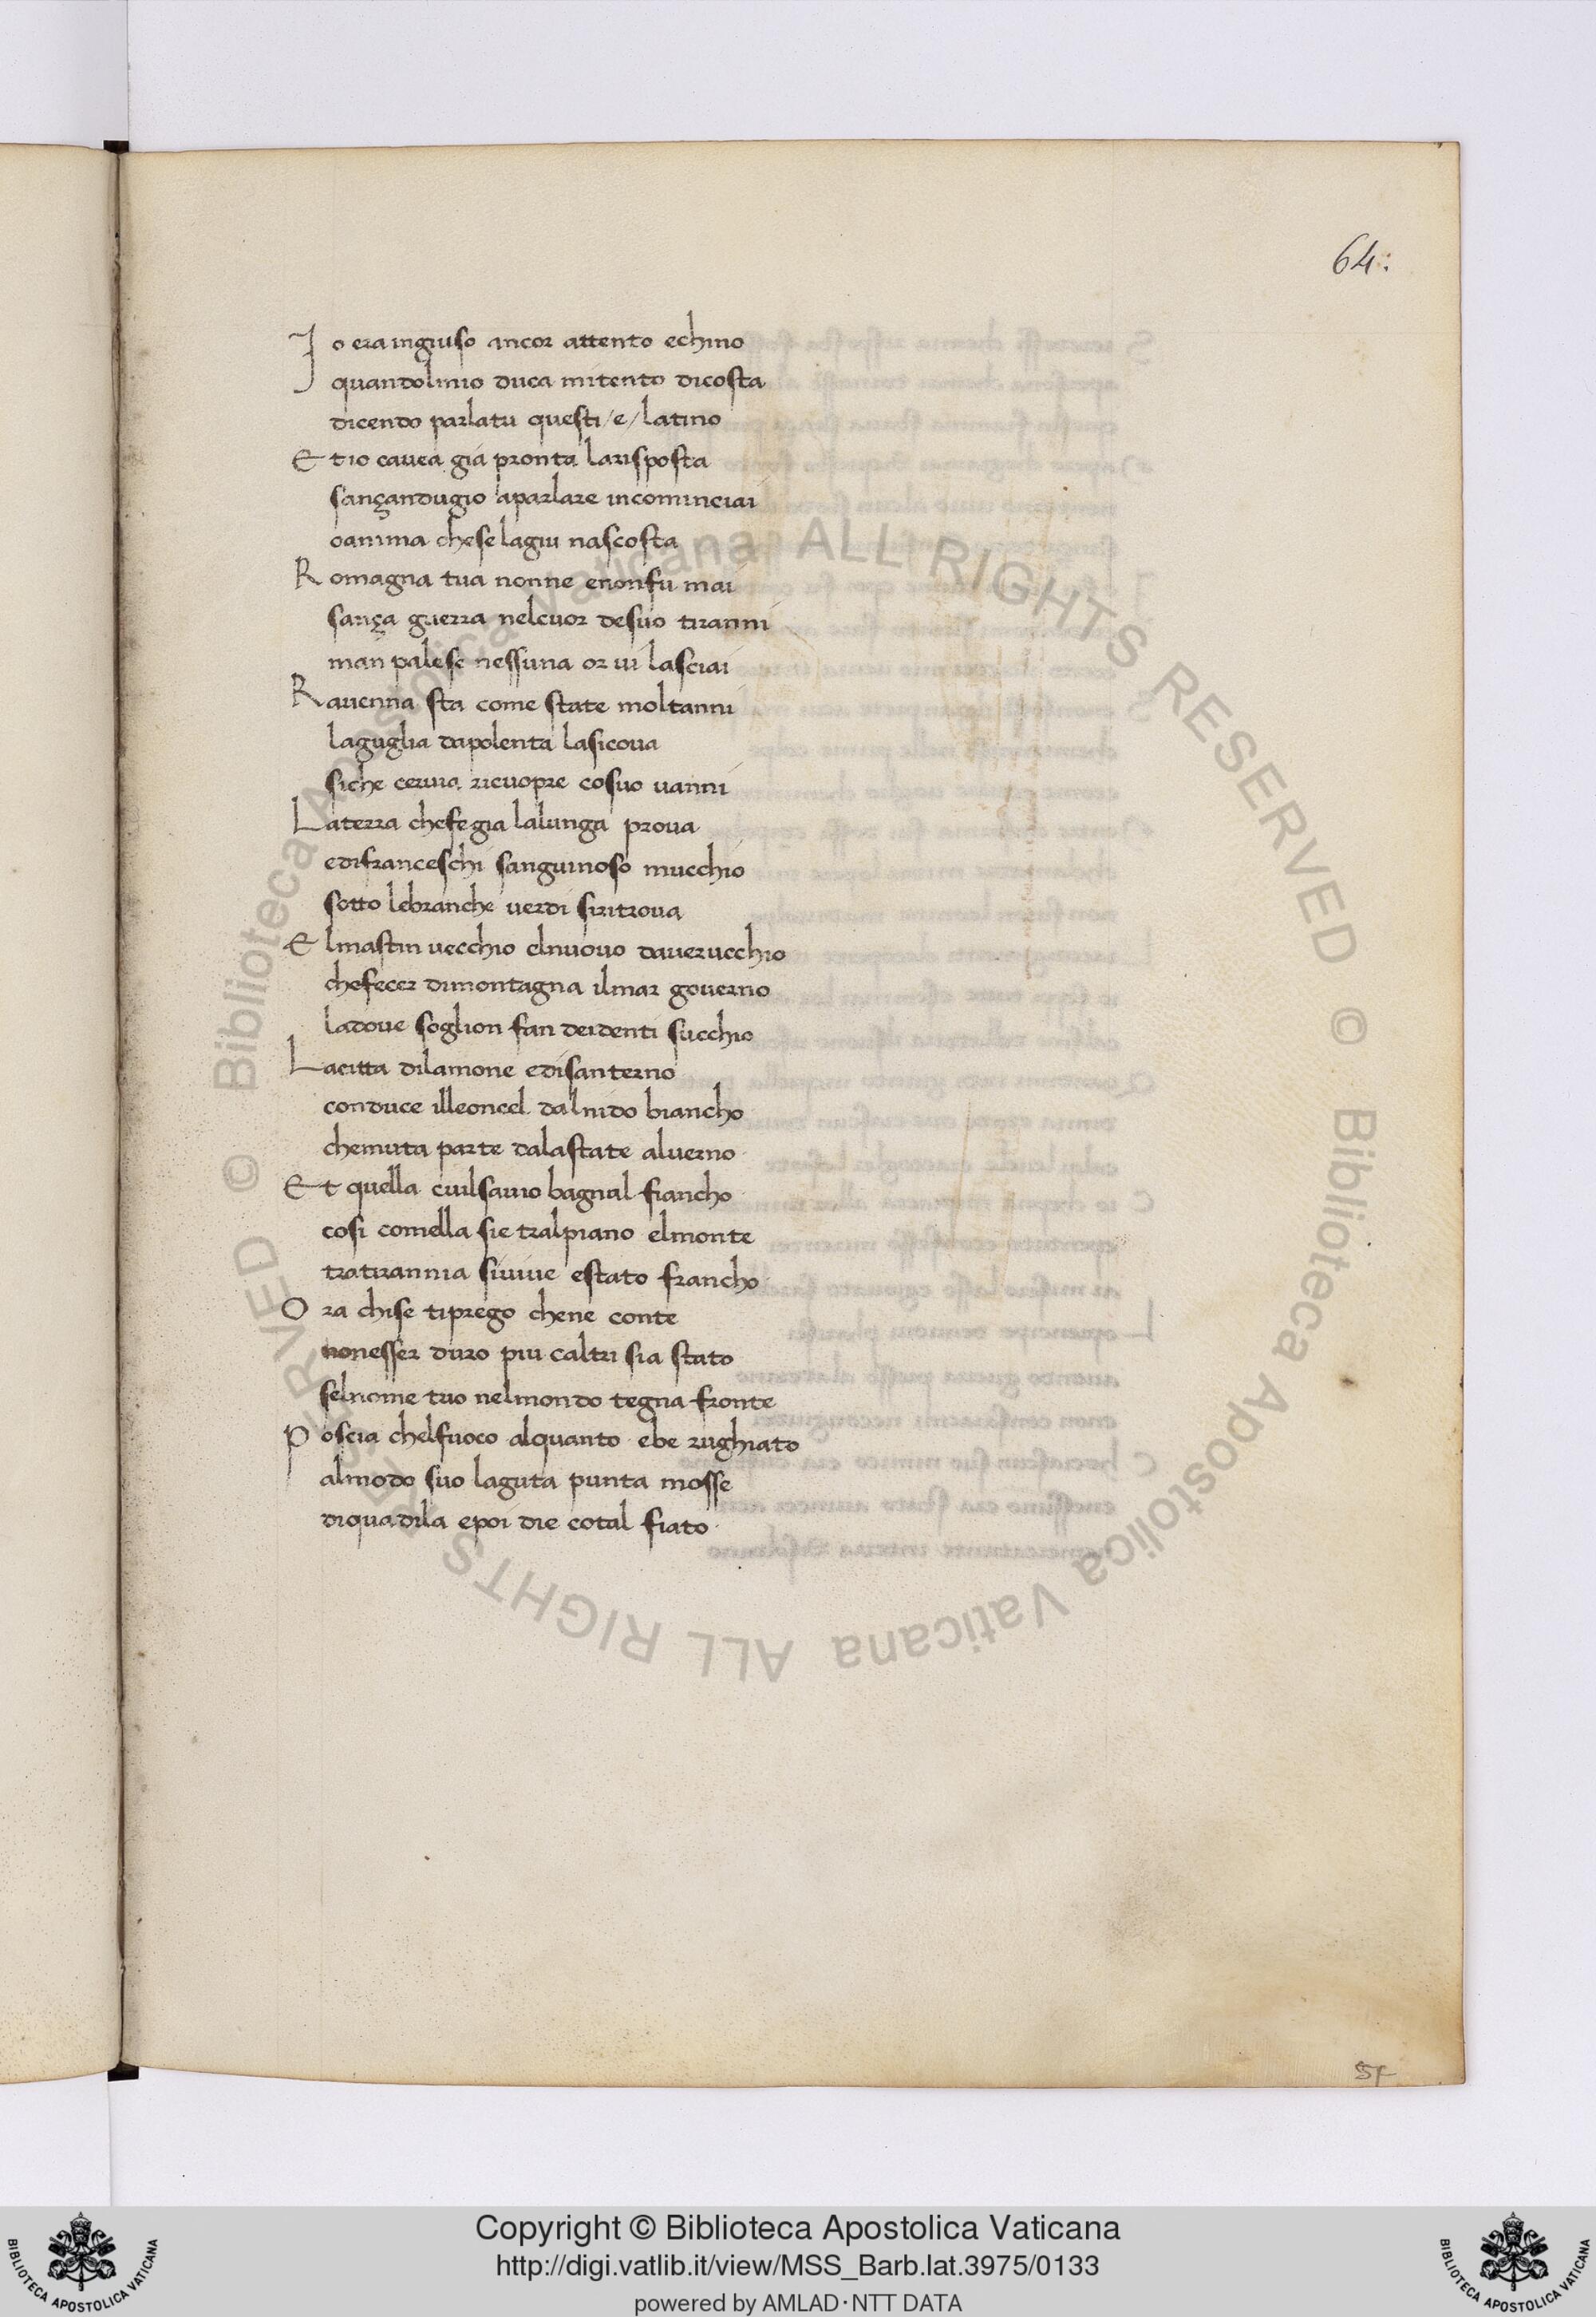 64:
Io era ingiuso ancor attento echino
quandolmio duca mitento dicosta
dicendo parlatu questi/e/latino
Et io cauea gia pronta larisposta
sançandugio aparlare incominciai
oanima chese lagiu nascosta
Romagna tua nonne enonfu mai
sança guerra nelcuor desuo tiranni
man palese nessuna or ui lasciai
Rauenna sta come state moltanni
laguglia dapolenta lasicoua
siche ceruia ricuopre cosuo uanni
Laterra chefegia lalunga proua
edifranceschi sanguinoso mucchio
sotto lebranche uerdi siritroua
Elmastin uecchio elnuouo dauerucchio
chefecer dimontagna ilmar gouerno
ladoue soglion fan deidenti succhio
Lacitta dilamone edisanterno
conduce illeoncel dalnido biancho
chemuta parte dalastate aluerno
Et quella cuilsauio bagnal fiancho
cosi comella sie tralpiano elmonte
tratirannia siuiue estato francho
Ora chise tiprego chene conte
nonesser duro piu caltri sia stato
selnome tuo nelmondo tegna fronte
Poscia chelfuoco alquanto ebe rughiato
almodo suo laguta punta mosse
diquadila epoi die cotal fiato
57
© Biblioteca Apostolica Vaticana ALL RIGHTS RESERVED © Biblioteca Apostolica Vaticana ALL RIGHTS RESERVED
Copyright © Biblioteca Apostolica Vaticana
http://digi.vatlib.it/view/MSS_Barb.lat.3975/0133
powered by AMLAD·NTT DATA
BIBLIOTECA APOSTOLICA VATICANA
BIBLIOTECA APOSTOLICA VATICANA